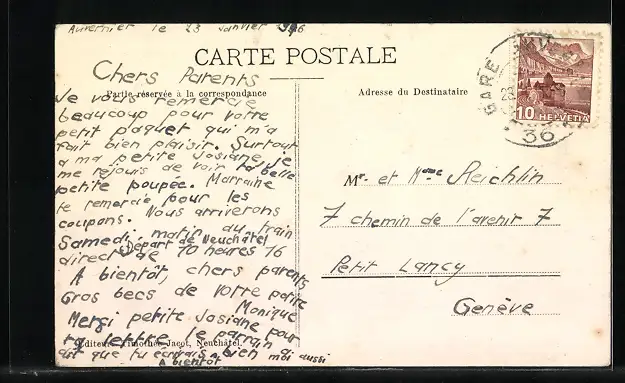 Auvernier le 23 janvier 1946
CARTE POSTALE
Chers Parents
Partie réservée à la correspondance
Adresse du Destinataire
Je vous remercie
beaucoup pour votre
petit paquet qui m'a
fait bien plaisir. Surtout
a ma petite Josiane je
me rejouis de voir ta belle
petite poupée. Marraine
te remercie pour les
coupons. Nous arriverons
Samedi matin au train
Départ de Neuchâtel
direct de 10 heures 16
A bientôt, chers parents
Gros becs de votre petite
Monique
Merçi petite Josiane pour
ta lettre le parrain
Editeur: Timothée Jacot, Neuchâtel.
dit que tu écrivais bien moi aussi
A bientôt
GARE
23
36
10 HELVETIA
Mr. et Mme Reichlin
7 chemin de l'avenir 7
Petit Lancy
Genève